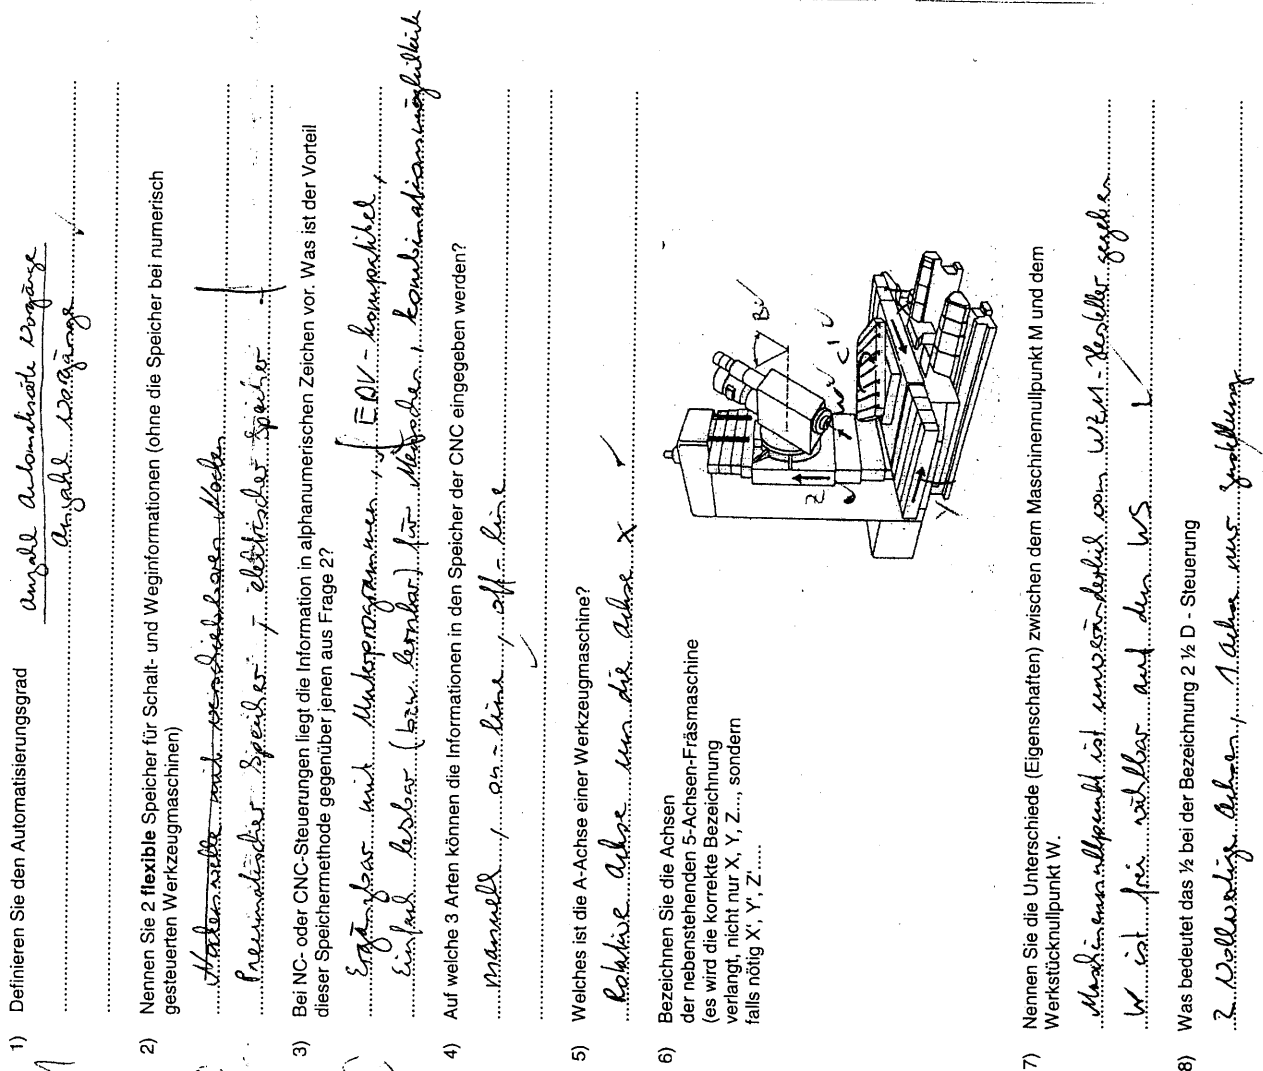 1) Definieren Sie den Automatisierungsgrad
Anzahl Automatisierte Vorgänge
Anzahl Vorgänge
2) Nennen Sie 2 flexible Speicher für Schalt- und Weginformationen (ohne die Speicher bei numerisch
gesteuerten Werkzeugmaschinen)
Nockenwelle mit verschiebbaren Nocken
Pneumatischer Speicher, - elektrischer Speicher
3) Bei NC- oder CNC-Steuerungen liegt die Information in alphanumerischen Zeichen vor. Was ist der Vorteil
dieser Speichermethode gegenüber jenen aus Frage 2?
Ergänzbar mit Unterprogrammen, EDV-kompatibel,
Einfach lesbar (bzw. lernbar) für Menschen, Kombinationsmöglichkeit
4) Auf welche 3 Arten können die Informationen in den Speicher der CNC eingegeben werden?
manuell, on-line, off-line
5) Welches ist die A-Achse einer Werkzeugmaschine?
Rotative Achse um die Achse X
6) Bezeichnen Sie die Achsen
der nebenstehenden 5-Achsen-Fräsmaschine
(es wird die korrekte Bezeichnung
verlangt, nicht nur X, Y, Z..., sondern
falls nötig X', Y', Z'.....
Z
B
C
Y
7) Nennen Sie die Unterschiede (Eigenschaften) zwischen dem Maschinennullpunkt M und dem
Werkstücknullpunkt W.
Maschinennullpunkt ist unveränderlich vom WZM-Hersteller gegeben
W ist frei wählbar auf dem WS
8) Was bedeutet das ½ bei der Bezeichnung 2 ½ D - Steuerung
2 Vollwertige Achsen, 1 Achse nur Zustellung